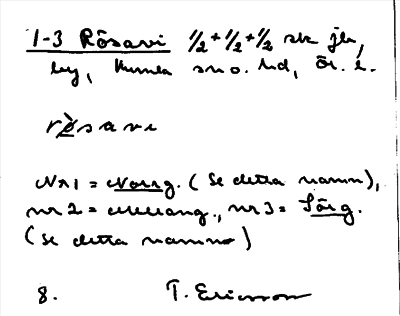 1-3 Rösavi 1/2 + 1/2 + 1/2 sk jb,
by, Kumla sn o. hd, Ör. l.
ròsavi
Nr 1 = Norrg. (Se detta namn),
nr 2 = Mellang., nr 3 = Sörg.
(Se detta namn)
8. T. Ericsson